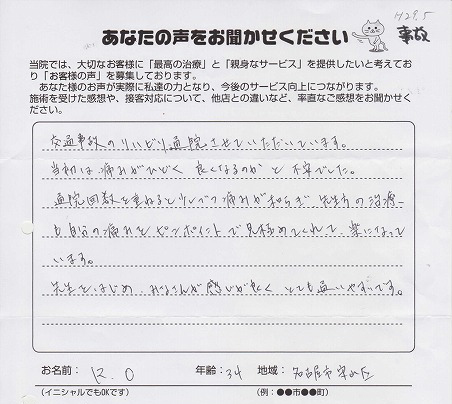 H29.5
事故
あなたの声をお聞かせください
当院では、大切なお客様に「最高の治療」と「親身なサービス」を提供したいと考えてお
り「お客様の声」を募集しております。
あなた様のお声が実際に私達の力となり、今後のサービス向上につながります。
施術を受けた感想や、接客対応について、他店との違いなど、率直なご感想をお聞かせく
ださい。
交通事故のリハビリ通院させていただいています。
当初は痛みがひどく 良くなるのか と不安でした。
通院回数を重ねると少しづつ痛みが和らぎ 先生方の治療
も自分の痛みをピンポイントで見極めてくれて 楽になって
います。
先生をはじめ、みなさんが感じが良く とても通いやすいです。
お名前: K. O 年齢: 34 地域: 名古屋市守山区
(イニシャルでもOKです) (例:●●市●●町)